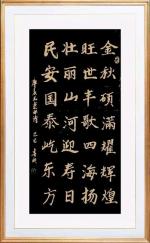 金秋硕满耀辉煌
旺世丰歌四海扬
壮丽山河迎寿日
民安国泰屹东方